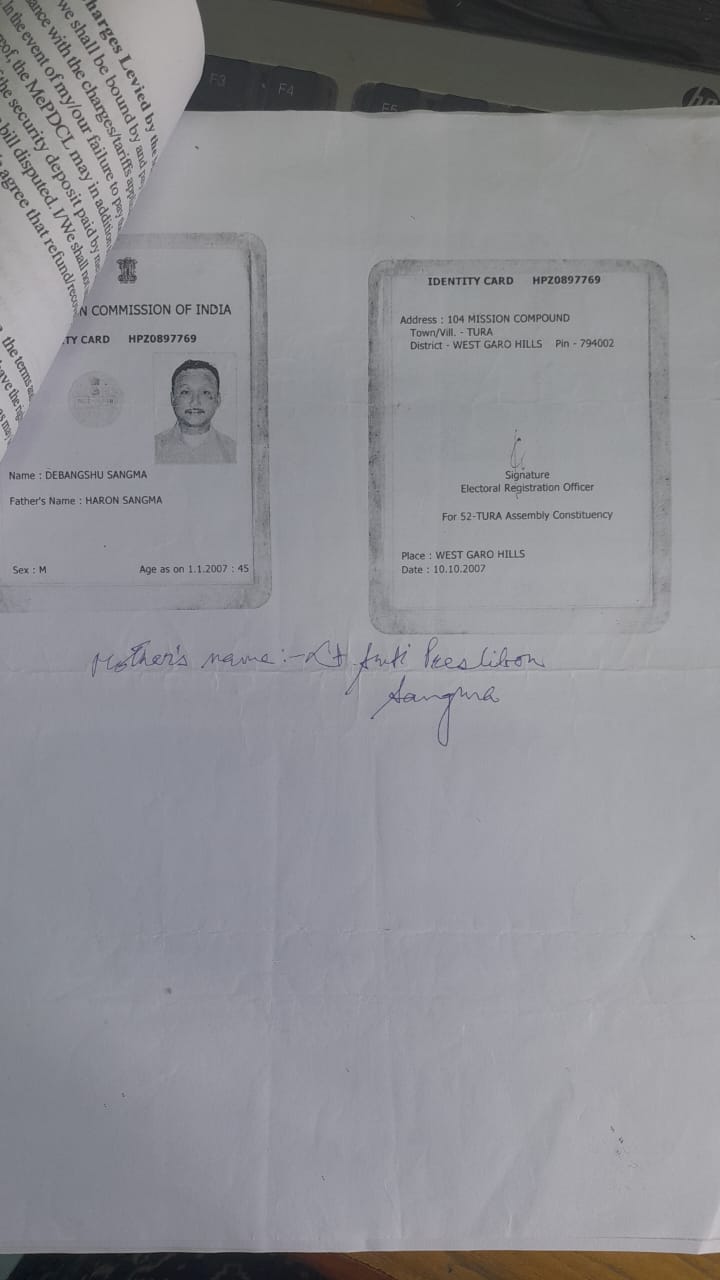 harges Levied by the
we shall be bound by and
ance with the charges/tariffs
In the event of my/our failure to pay
of, the MePDCL may in addition
the security deposit paid by
bill disputed. I/We shall
agree that refund/
the terms
ave the
as may
F3
F4
F5
hp
N COMMISSION OF INDIA
TY CARD HPZ0897769
Name : DEBANGSHU SANGMA
Father's Name : HARON SANGMA
Sex : M Age as on 1.1.2007 : 45
IDENTITY CARD HPZ0897769
Address : 104 MISSION COMPOUND
Town/Vill. - TURA
District - WEST GARO HILLS Pin - 794002
Signature
Electoral Registration Officer
For 52-TURA Assembly Constituency
Place : WEST GARO HILLS
Date : 10.10.2007
Mother's name :- Lt
Sangma